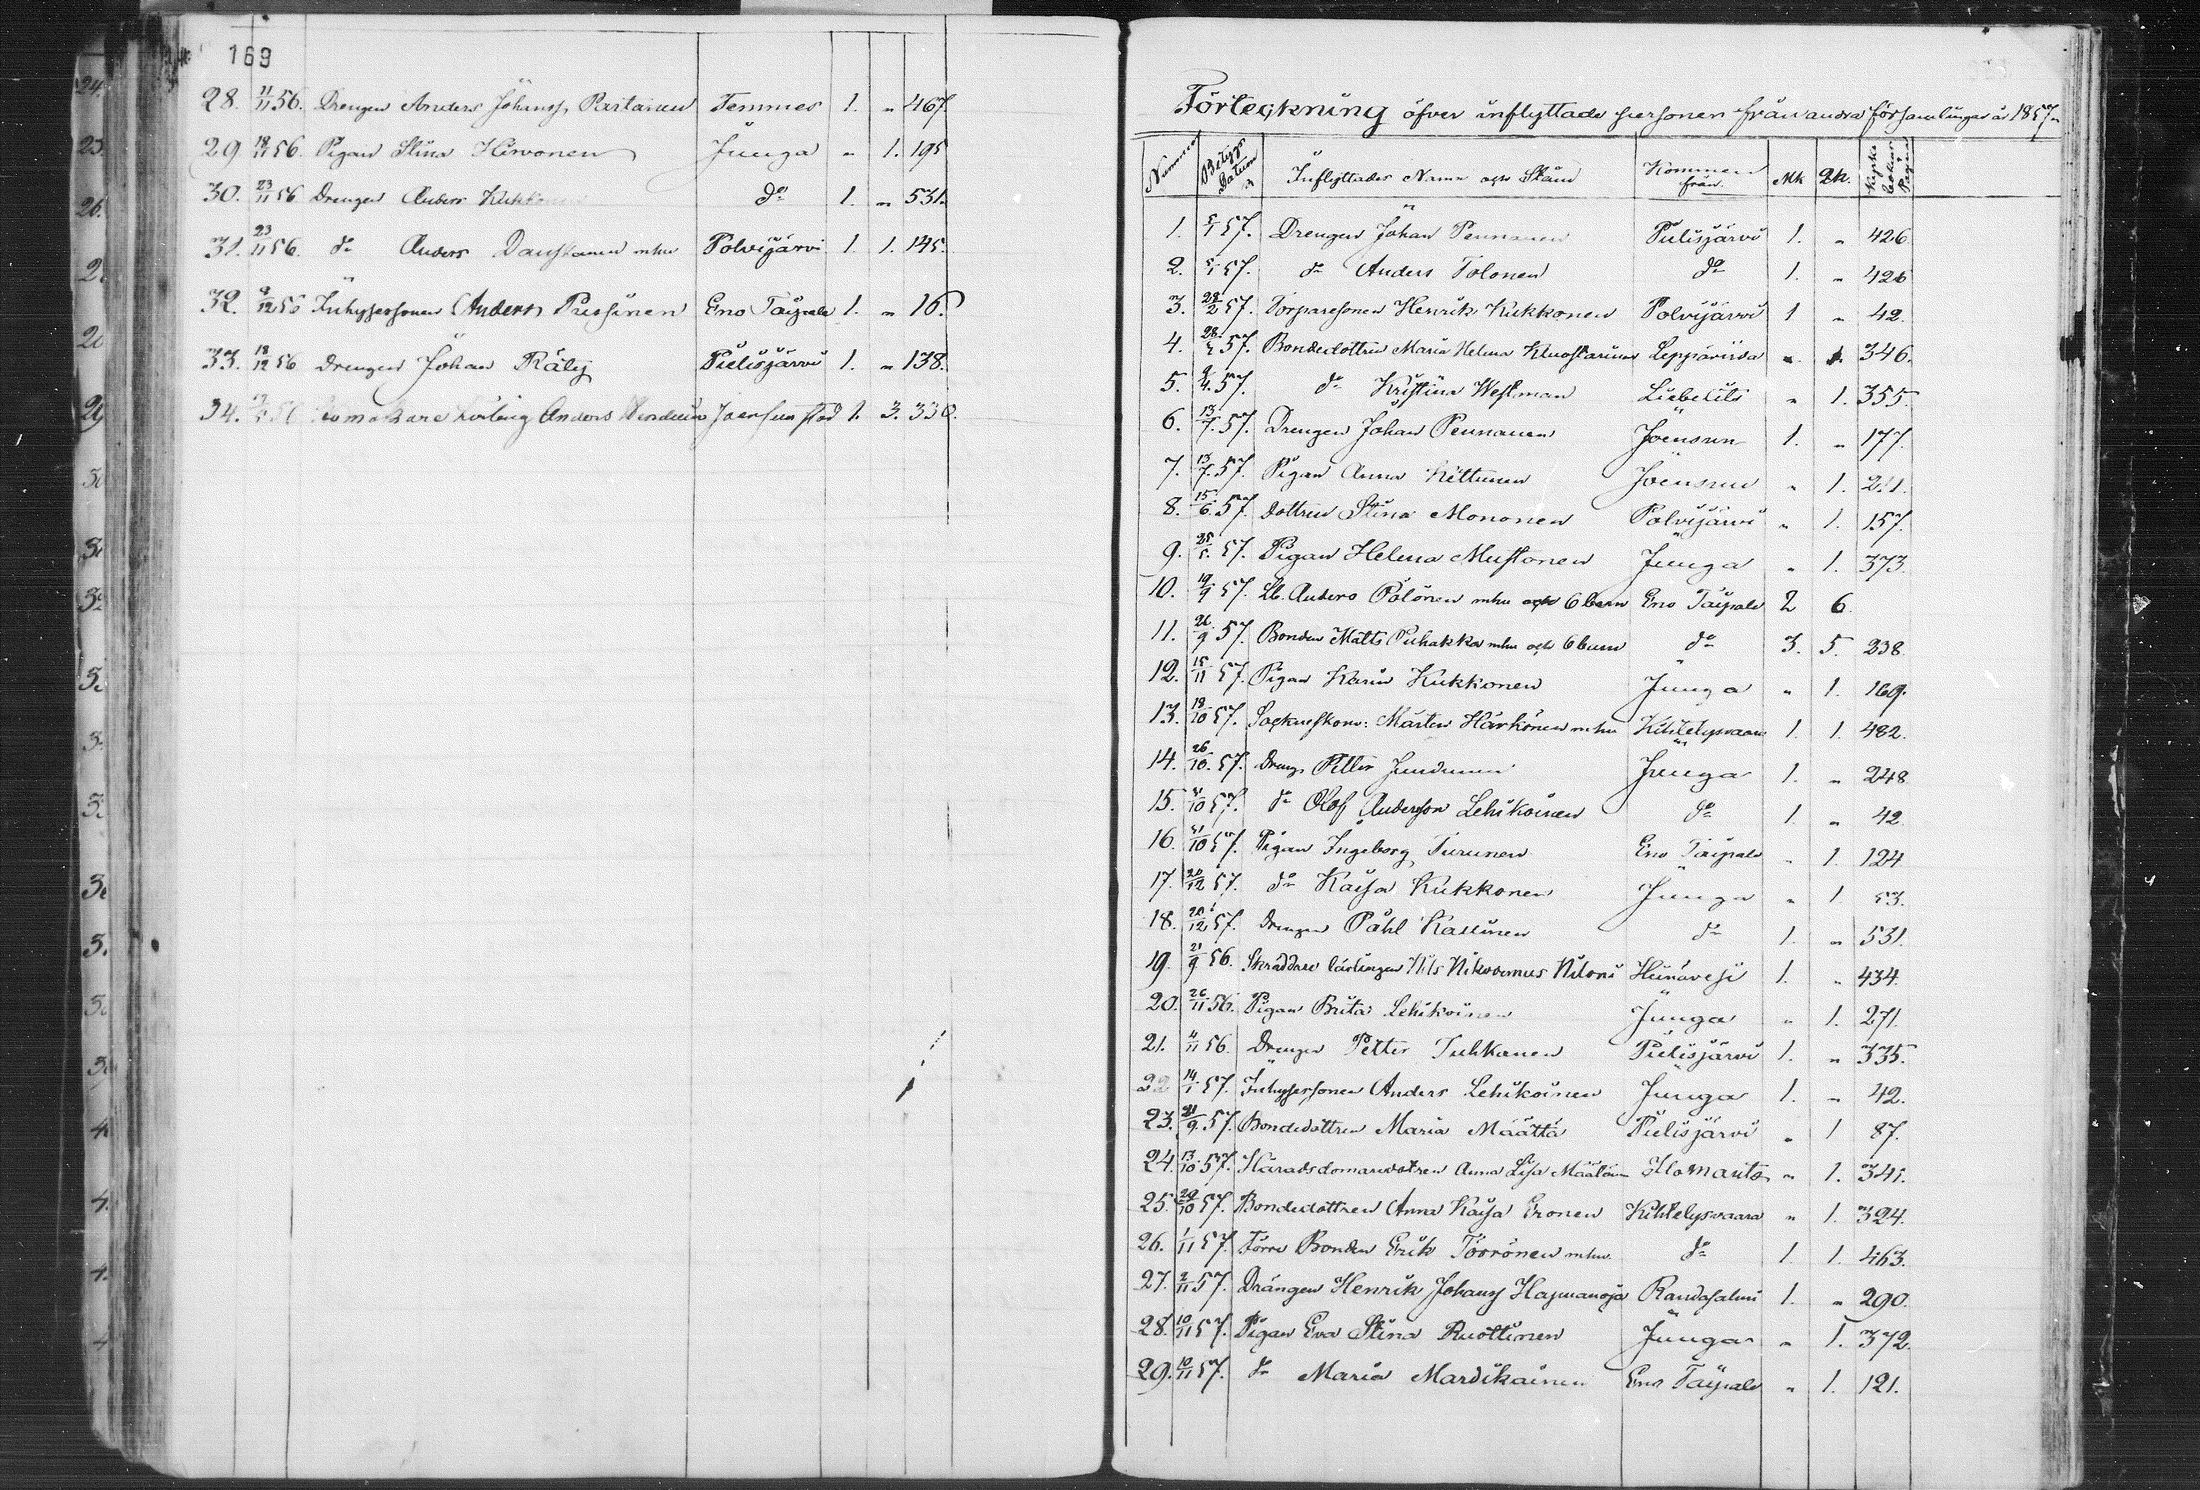 169
28. 11/11 56. Drengen Anders Johanss. Partanen Temmes 1. " 467.
29 18/11 56. Pigan Stina Hirvonen Juuga " 1. 195
30. 23/11 56 Drengen Anders Kukkonen do 1. " 531.
31. 23/11 56. do Anders mhu Polvijärvi 1. 1. 145.
32. 9/12 56 Inhyspersonen Anders Pursinen Eno Taipale 1. " 16.
33. 18/12 56 Drengen Johan Räty Pielisjärvi 1. " 138.
34. Anders Joensuu stad 1. 3. 330.
Förteckning öfver inflyttade personer från andra församlingar år 1857.
Nummer Betygs Datum Inflyttades Namn och Stånd Kommen från. Mk Qk. Kyrko bokens Pagina
1. 5/1 57. Drengen Johan Pennanen Pielisjärvi 1. " 426
2. 5/1 57. do Anders Tolonen do 1. " 426
3. 22/2 57. Torparesonen Henrik Kukkonen Polvijärvi 1 " 42.
4. 28/2 57. Bondedottren Maria Helena Leppävirta " 1. 346.
5. 9/4 57. do Kristina Westman Libelits " 1. 355.
6. 13/7 57. Drengen Johan Pennanen Joensuu 1. " 177
7. 13/7 57. Pigan Anna Kettunen Joensuu " 1. 211.
8. 15/6 57. Dottren Stina Mononen Polvijärvi " 1. 157.
9. 25/5 57. Pigan Helena Mustonen Juuga " 1. 373
10. 19/9 57. Lb. Anders Polönen mhu och 6 barn Eno Taipale 2 6.
11. 26/9 57. Bonden Matts Puhakka mhu och 6 barn do 3. 5. 238
12. 15/11 57. Pigan Karin Kukkonen Juuga " 1. 169.
13. 18/10 57. Sockneskom: Mårten Härkönen mhu Kihtelysvaara 1. 1. 482.
14. 26/10 57. Dreng. Petter Juuga 1. " 248
15. 31/10 57. do Olof Andersson Lehikoinen do 1. " 42
16. 31/10 57. Pigan Ingeborg Turunen Eno Taipale " 1. 124
17. 20/12 57. do Kaisa Kukkonen Juuga " 1 53.
18. 20/12 57. Drengen Påhl Kassinen do 1. " 531.
19. 21/9 56. Skräddare lärlingen Nils Nikodemus Heinävesi 1. " 434.
20. 26/11 56. Pigan Brita Lehikoinen Juuga " 1. 271.
21. 4/11 56. Drengen Petter Tuhkanen Pielisjärvi 1. " 335.
22 14/1 57. Inhyspersonen Anders Lehikoinen Juuga 1. " 42.
23. 21/9 57. Bondedottren Maria Määttä Pielisjärvi " 1 87.
24. 13/10 57. Häradsdomaredotren Anna Lisa Ilomants " 1. 341.
25. 29/10 57. Bondedottren Anna Kaisa Eronen Kihtelysvaara " 1. 324.
26. 1/11 57. Förre Bonden Erik Törrönen mhu. do 1 1. 463.
27. 2/11 57. Drängen Henrik Johanss Randasalmi 1. " 290.
28. 10/11 57. Pigan Eva Stina Ruottinen Juuga " 1. 372.
29. 10/11 57. do Maria Mardikainen Eno Taipale " 1. 121.